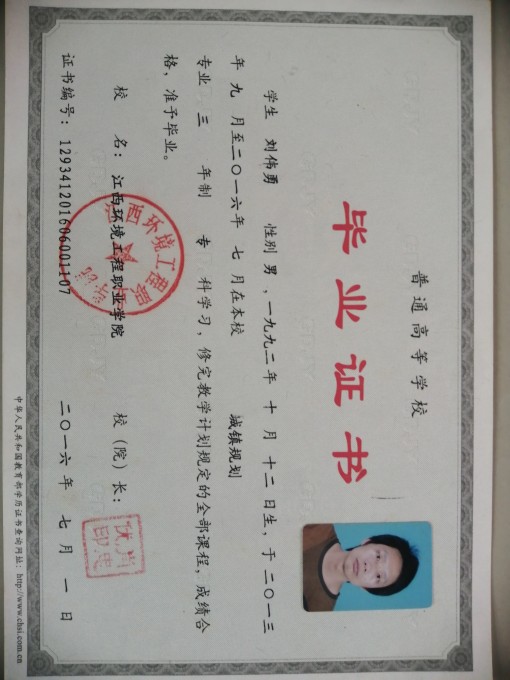 普通高等学校
毕业证书
学生 刘伟勇 性别 男，一九九二年 十月 十二日生，于二〇一三
年 九 月至二〇一六年 七 月在本校 城镇规划
专业 三 年制 专 科学习，修完教学计划规定的全部课程，成绩合
格，准予毕业。
校 名：江西环境工程职业学院 校（院）长：
证书编号：129341201606001107 二〇一六年 七 月 一 日
中华人民共和国教育部学历证书查询网址：http://www.chsi.com.cn